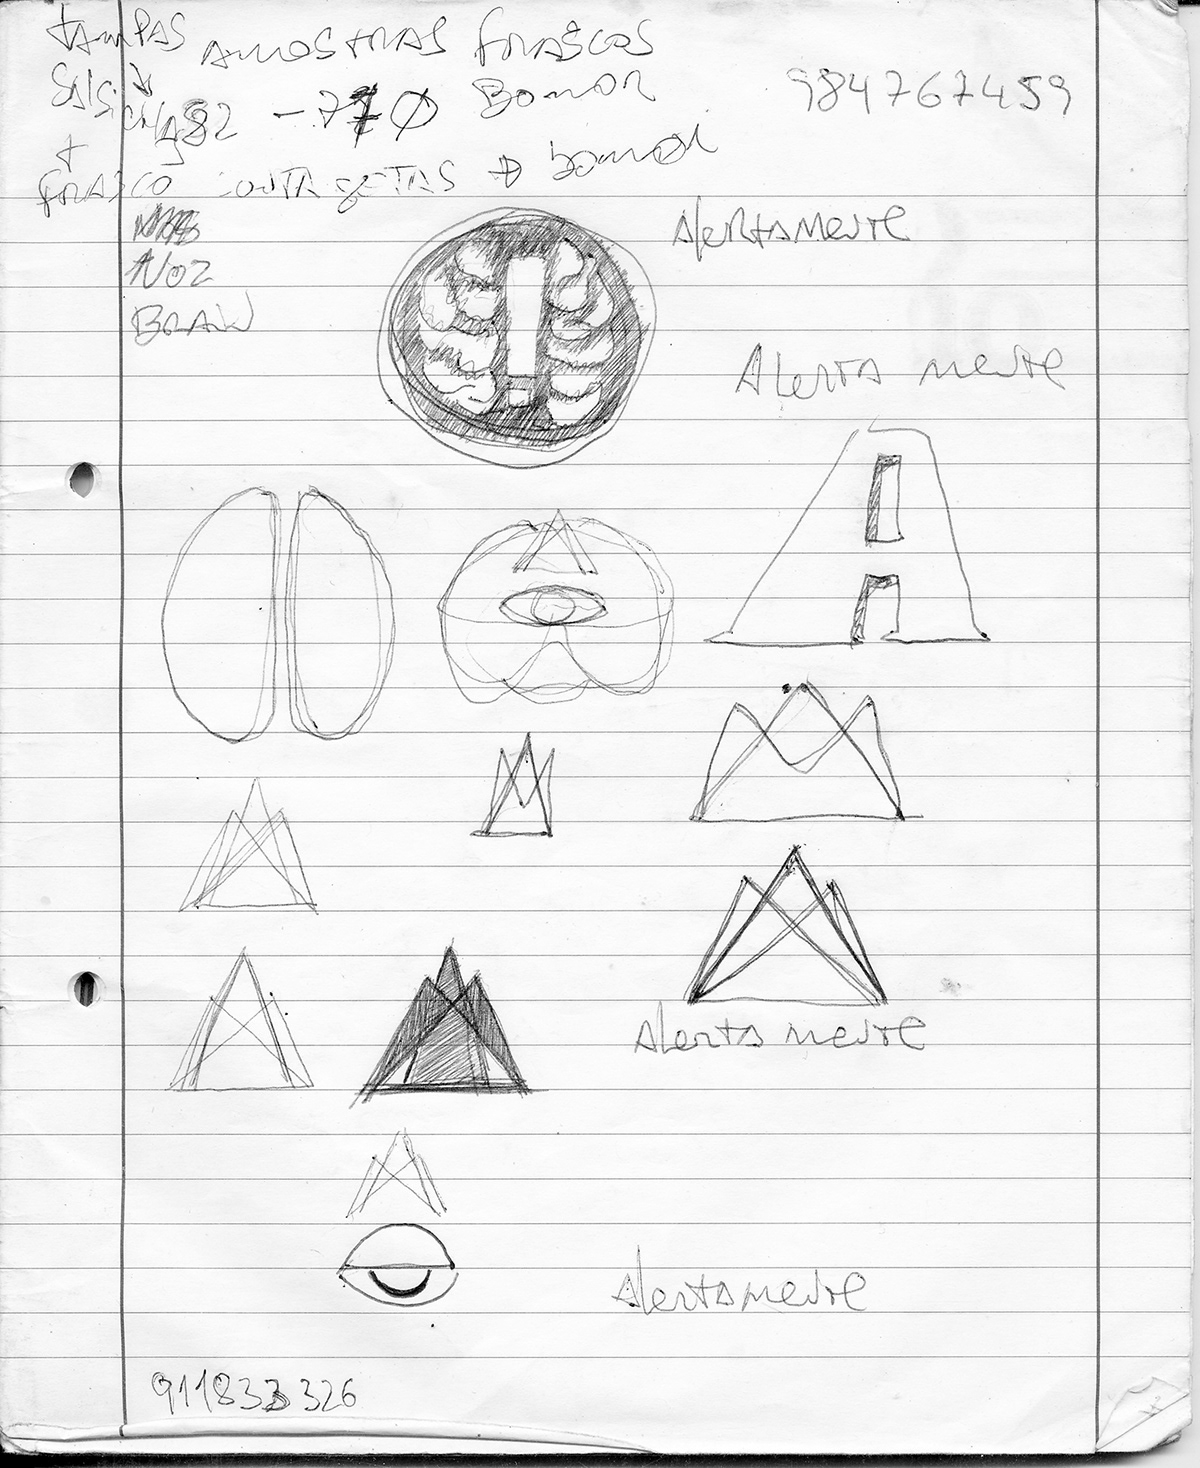 TAMPAS AMOSTRAS FRASCOS
SALSICHAS
82 - 770 BOMOR
984767459
+
FRASCO CONTA GOTAS → BOMOR
NOZ
BRAIN
Alertamente
Alerta mente
Alerta mente
Alertamente
911833326